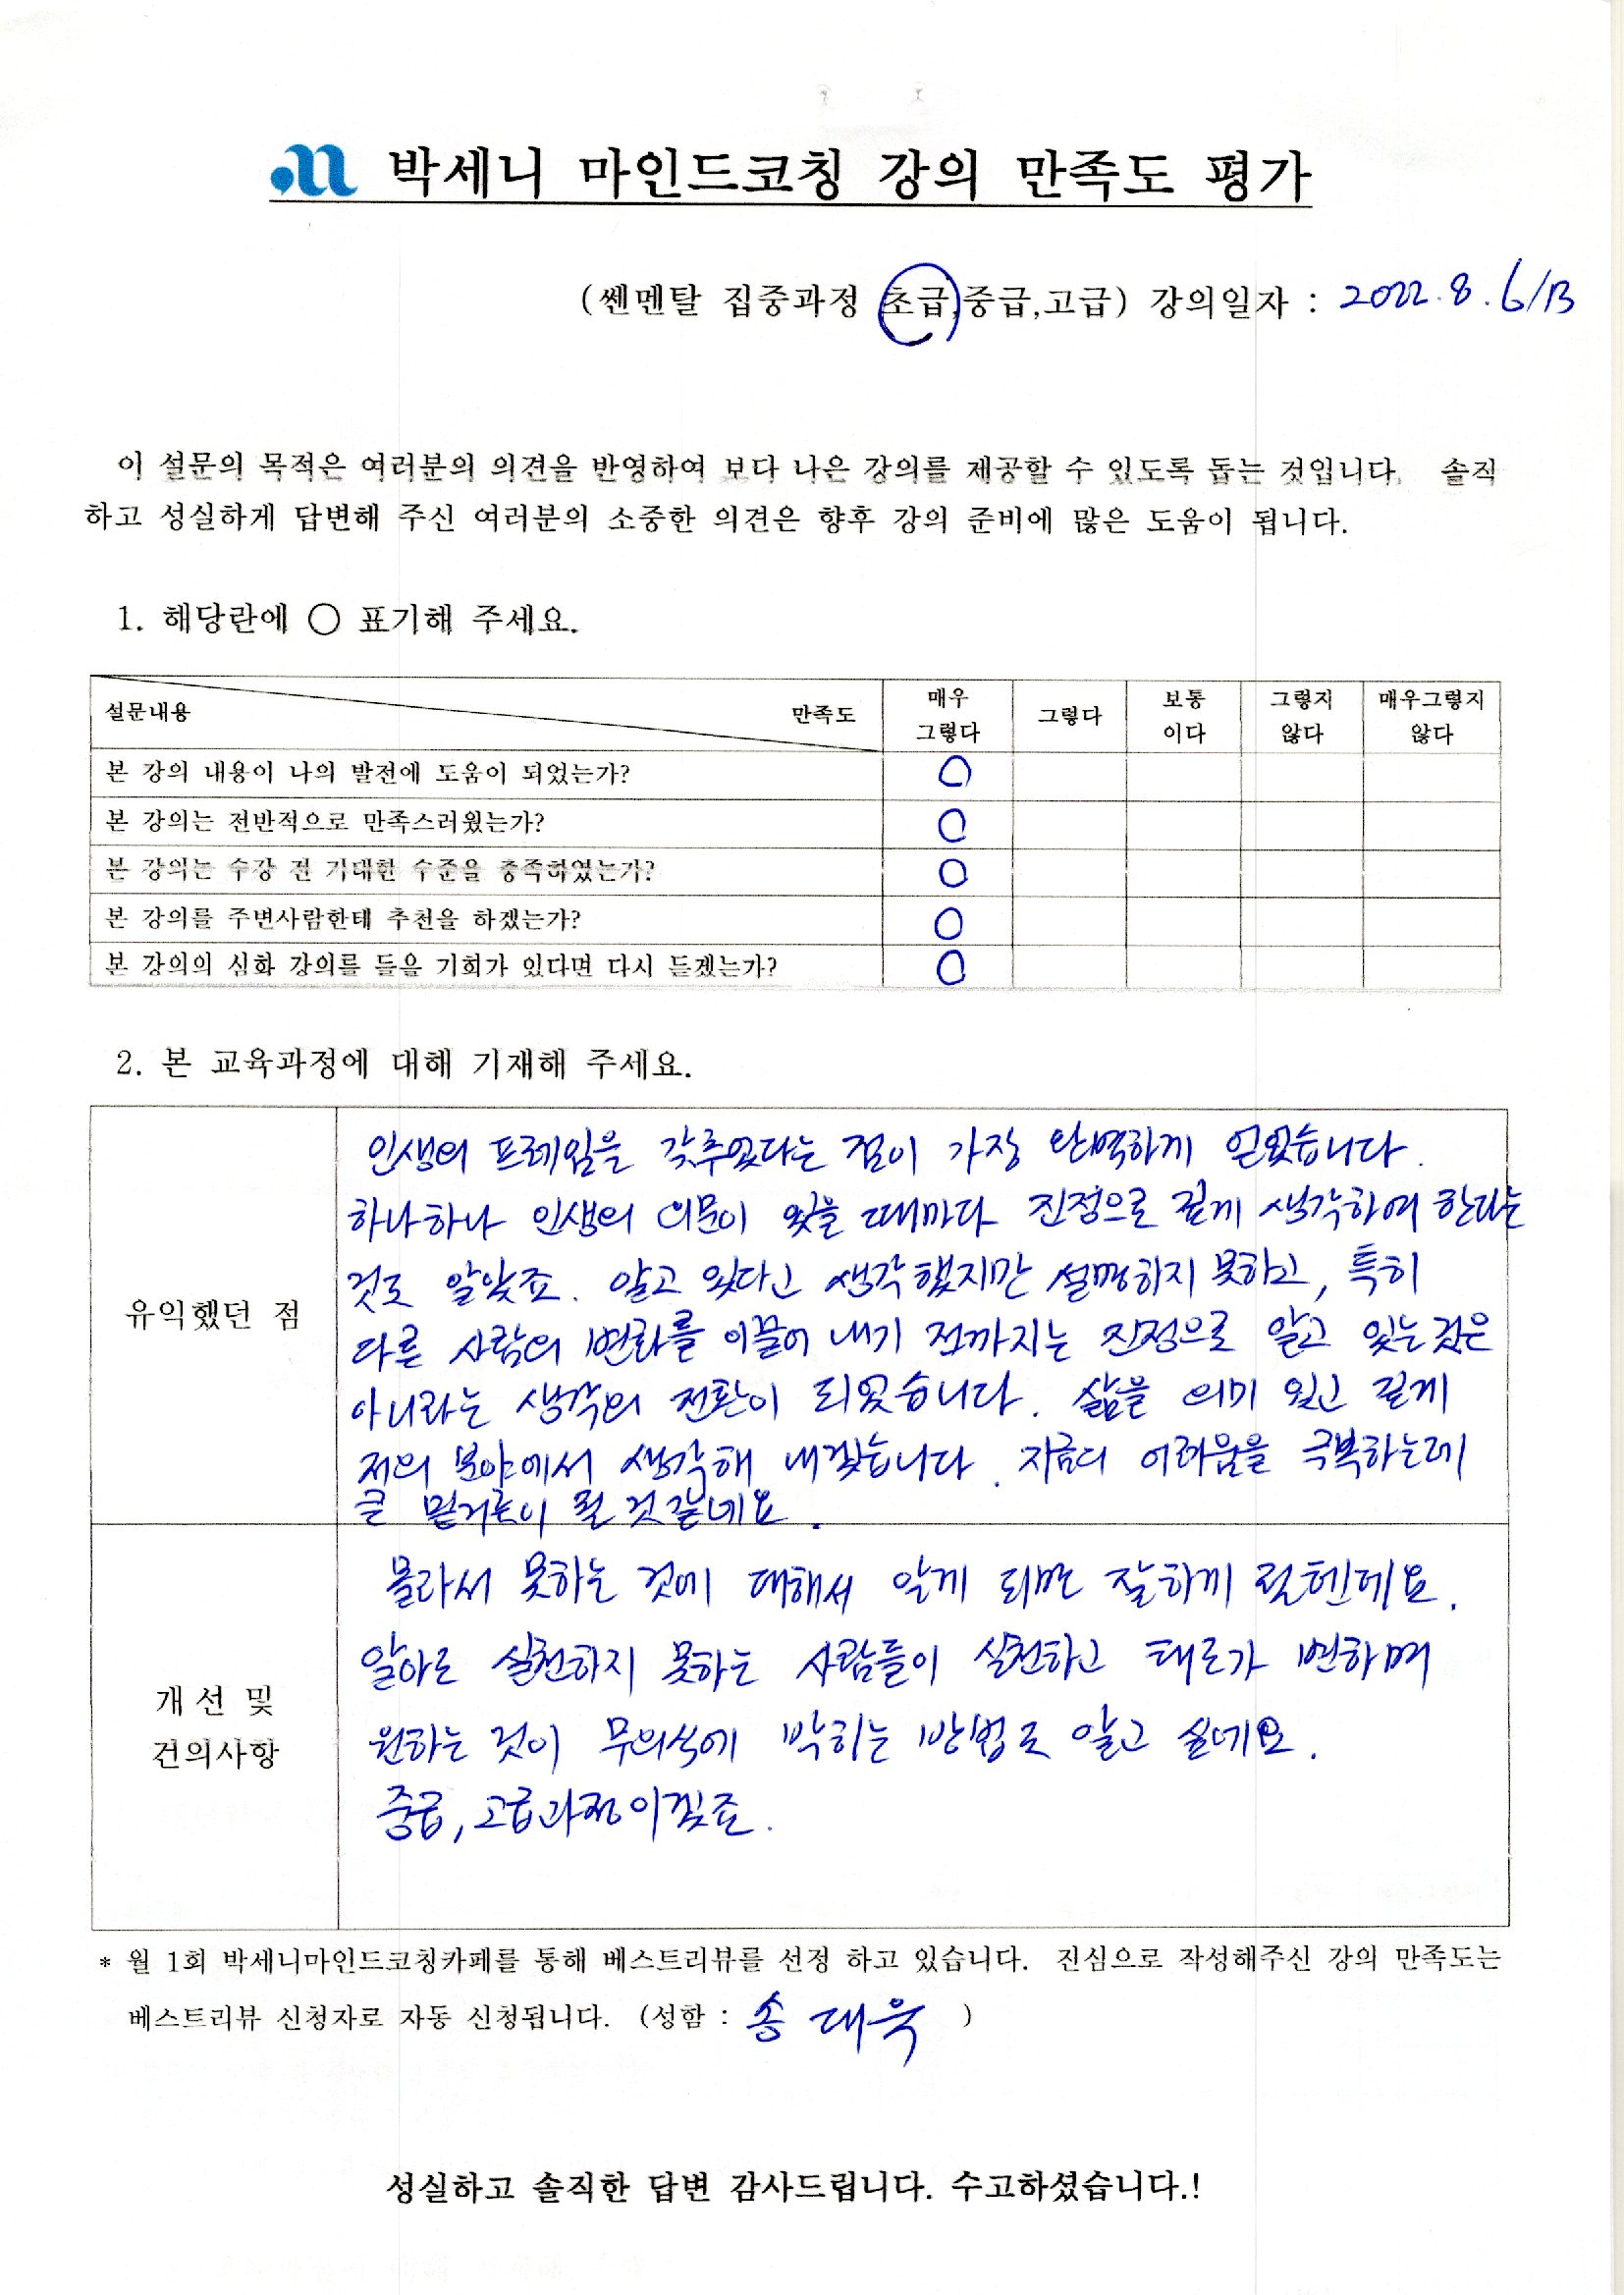 박세니 마인드코칭 강의 만족도 평가
(쎈멘탈 집중과정 초급,중급,고급) 강의일자 : 2022. 8. 6/13
이 설문의 목적은 여러분의 의견을 반영하여 보다 나은 강의를 제공할 수 있도록 돕는 것입니다. 솔직
하고 성실하게 답변해 주신 여러분의 소중한 의견은 향후 강의 준비에 많은 도움이 됩니다.
1. 해당란에 ○ 표기해 주세요.
설문내용 만족도 매우 그렇다 그렇다 보통 이다 그렇지 않다 매우그렇지 않다
본 강의 내용이 나의 발전에 도움이 되었는가? ○
본 강의는 전반적으로 만족스러웠는가? ○
본 강의는 수강 전 기대한 수준을 충족하였는가? ○
본 강의를 주변사람한테 추천을 하겠는가? ○
본 강의의 심화 강의를 들을 기회가 있다면 다시 듣겠는가? ○
2. 본 교육과정에 대해 기재해 주세요.
유익했던 점
인생의 프레임을 갖추었다는 점이 가장 완벽하게 얻었습니다.
하나하나 인생의 의문이 있을 때마다 진정으로 깊게 생각하여 한다는
것도 알았죠. 알고 있다고 생각했지만 설명하지 못하고, 특히
다른 사람의 변화를 이끌어 내기 전까지는 진정으로 알고 있는 것은
아니라는 생각의 전환이 되었습니다. 삶을 의미 있고 깊게
저의 분야에서 생각해 내겠습니다. 지금의 어려움을 극복하는데
큰 밑거름이 될 것 같네요.
개선 및
건의사항
몰라서 못하는 것에 대해서 알게 되면 잘하게 될텐데요.
알아도 실천하지 못하는 사람들이 실천하고 태도가 변하며
원하는 것이 무의식에 박히는 방법도 알고 싶네요.
중급, 고급과정이겠죠.
* 월 1회 박세니마인드코칭카페를 통해 베스트리뷰를 선정 하고 있습니다. 진심으로 작성해주신 강의 만족도는
베스트리뷰 신청자로 자동 신청됩니다. (성함 : 송대욱 )
성실하고 솔직한 답변 감사드립니다. 수고하셨습니다.!